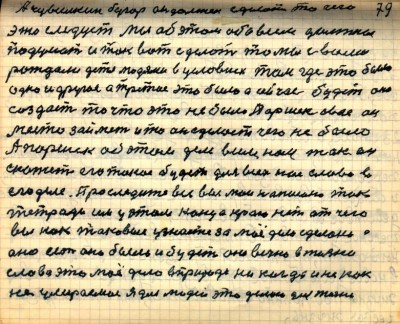 А чувашкин бугор он должен сделать то чего 79
это следует мы об этом обо всем должны
подумать и так вот сделать то мы с вами
рождали дети людями в условиях там где это было
одно и другое а третие это было а сейчас будет оно
создает то что это не было Паршек свое он
место займет и то он сделает чего не было
А паршек об этом деле всем нам так он
скажет его такое будет для всех нас слово в
его деле. Проследите все вы мои написано так
тетради им у этом конца края нет от чего
вы как таковые узнаете за моё дело сделано
оно есть оно было и будет оно вечно в жизни
слова это моё дело в природе никогда и никак
не умираемое Я для людей это делаю для жизни